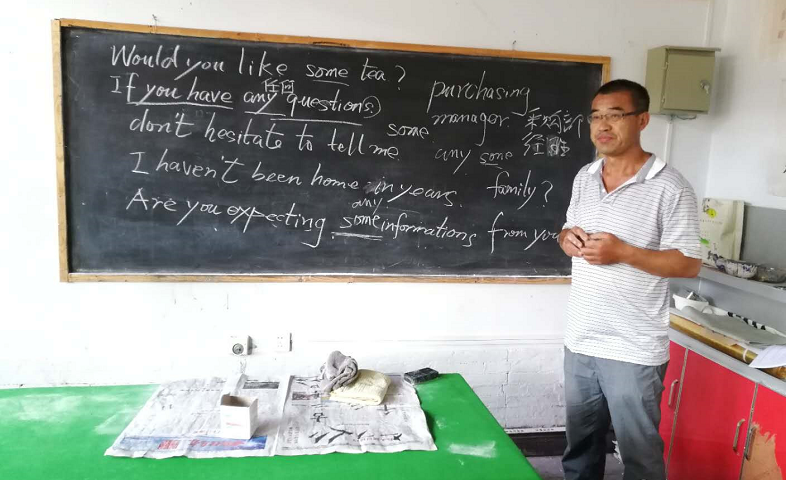 Would you like some tea?
If you have any questions
任何
don't hesitate to tell me
I haven't been home in years.
any
Are you expecting some informations from you
family?
purchasing
manager. 采购部
经理
some
any some